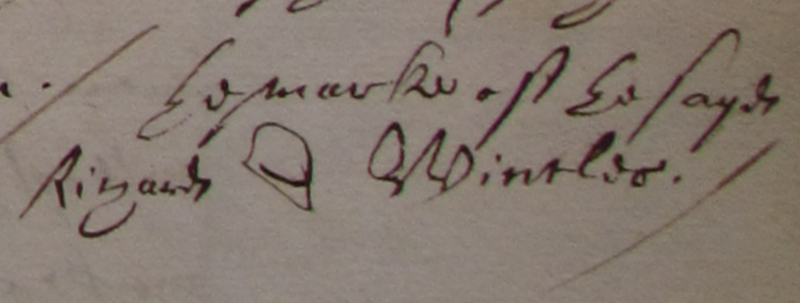 The marke of the sayde
Richard Winckles.